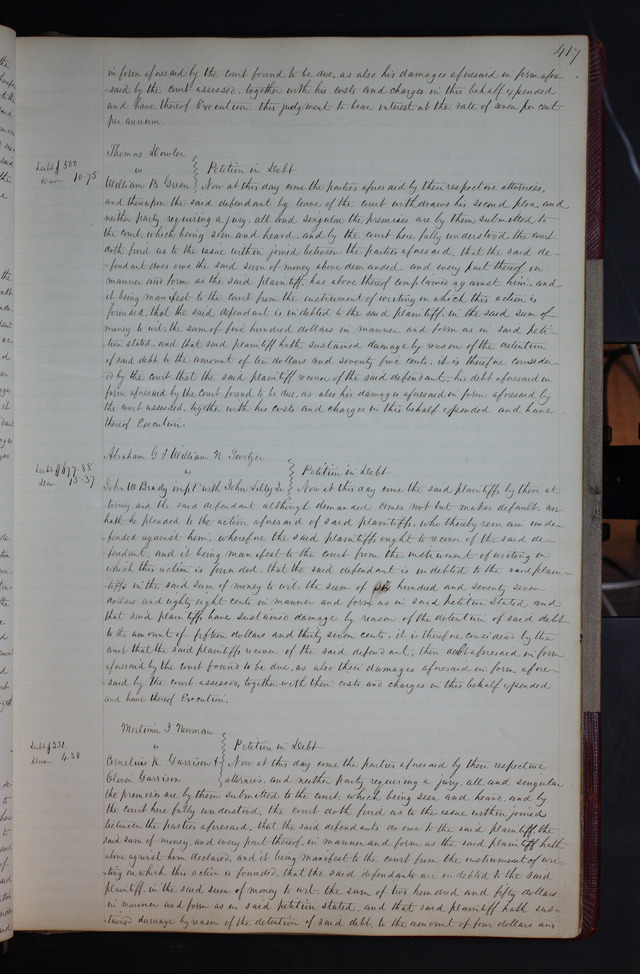 417
in form aforesaid by the court found to be due, as also his damages aforesaid in form afore
said by the court assessed, together with his costs and charges in this behalf expended
and have thereof Execution. this judgment to bear interest at the rate of seven per cent
per annum.
Thomas Dowler
Debt $500
Dam 10.75
vs Petition in Debt
William B Green Now at this day came the parties aforesaid by their respective attornies,
and thereupon the said defendant by leave of the court withdraws his second plea, and
neither party requiring a jury, all and singular the premises are by them submitted to
the court, which being seen and heard, and by the court here fully understood the court
doth find as to the issue within joined between the parties aforesaid, that the said de-
fendant does owe the said sum of money above demanded, and every part thereof, in
manner and form as the said plaintiff, has above thereof complained against him, and
it being manifest to the court from the instrument of writing on which this action is
founded, that the said defendant is indebted to the said plaintiff, in the said sum of
money to wit, the sum of five hundred dollars in manner and form as in said peti-
tion stated, and that said plaintiff hath sustained damage by reason of the detention
of said debt to the amount of ten dollars and seventy five cents, it is therefore consider-
ed by the court that the said plaintiff recover of the said defendant, his debt aforesaid in
form aforesaid by the court found to be due, as also his damages aforesaid in form aforesaid by
the court assessed, together with his costs and charges in this behalf expended and have
thereof Execution.
Abraham G & William N
Debt $677.88
Dam 15.37
vs Petition in Debt
John W Brady impl with John Lilly Jr Now at this day come the said plaintiffs by their at-
torney and the said defendant although demanded comes not but makes default, nor
hath he pleaded to the action aforesaid of said plaintiffs, who thereby remain unde-
fended against him, wherefore the said plaintiffs ought to recover of the said de-
fendant, and it being manifest to the court from the instrument of writing on
which this action is founded, that the said defendant is indebted to the said plain-
tiffs in the said sum of money to wit, the sum of six hundred and seventy seven
dollars and eighty eight cents in manner and form as in said Petition stated and
that said plaintiffs have sustained damage by reason of the detention of said debt
to the amount of fifteen dollars and thirty seven cents, it is therefore considered by the
court that the said plaintiffs recover of the said defendant, their debt aforesaid in form
aforesaid by the court found to be due, as also their damages aforesaid in form afore-
said by the court assessed, together with their costs and charges in this behalf expended
and have thereof Execution.
Mortimer J Newman
Debt $250.
Dam 4.38
vs Petition in Debt
Cornelius K Garrison & Now at this day come the parties aforesaid by their respective
Oliver Garrison attornies, and neither party requiring a jury, all and singular
the premises are by them submitted to the court, which being seen and heard, and by
the court here fully understood, the court doth find as to the issue within joined
between the parties aforesaid, that the said defendants do owe to the said plaintiff, the
said sum of money, and every part thereof, in manner and form as the said plaintiff hath
above against him declared, and it being manifest to the court from the instrument of wri-
ting on which this action is founded, that the said defendants are indebted to the said
plaintiff, in the said sum of money to wit, the sum of two hundred and fifty dollars
in manner and form as in said petition stated, and that said plaintiff hath sus-
tained damage by reason of the detention of said debt, to the amount of four dollars and